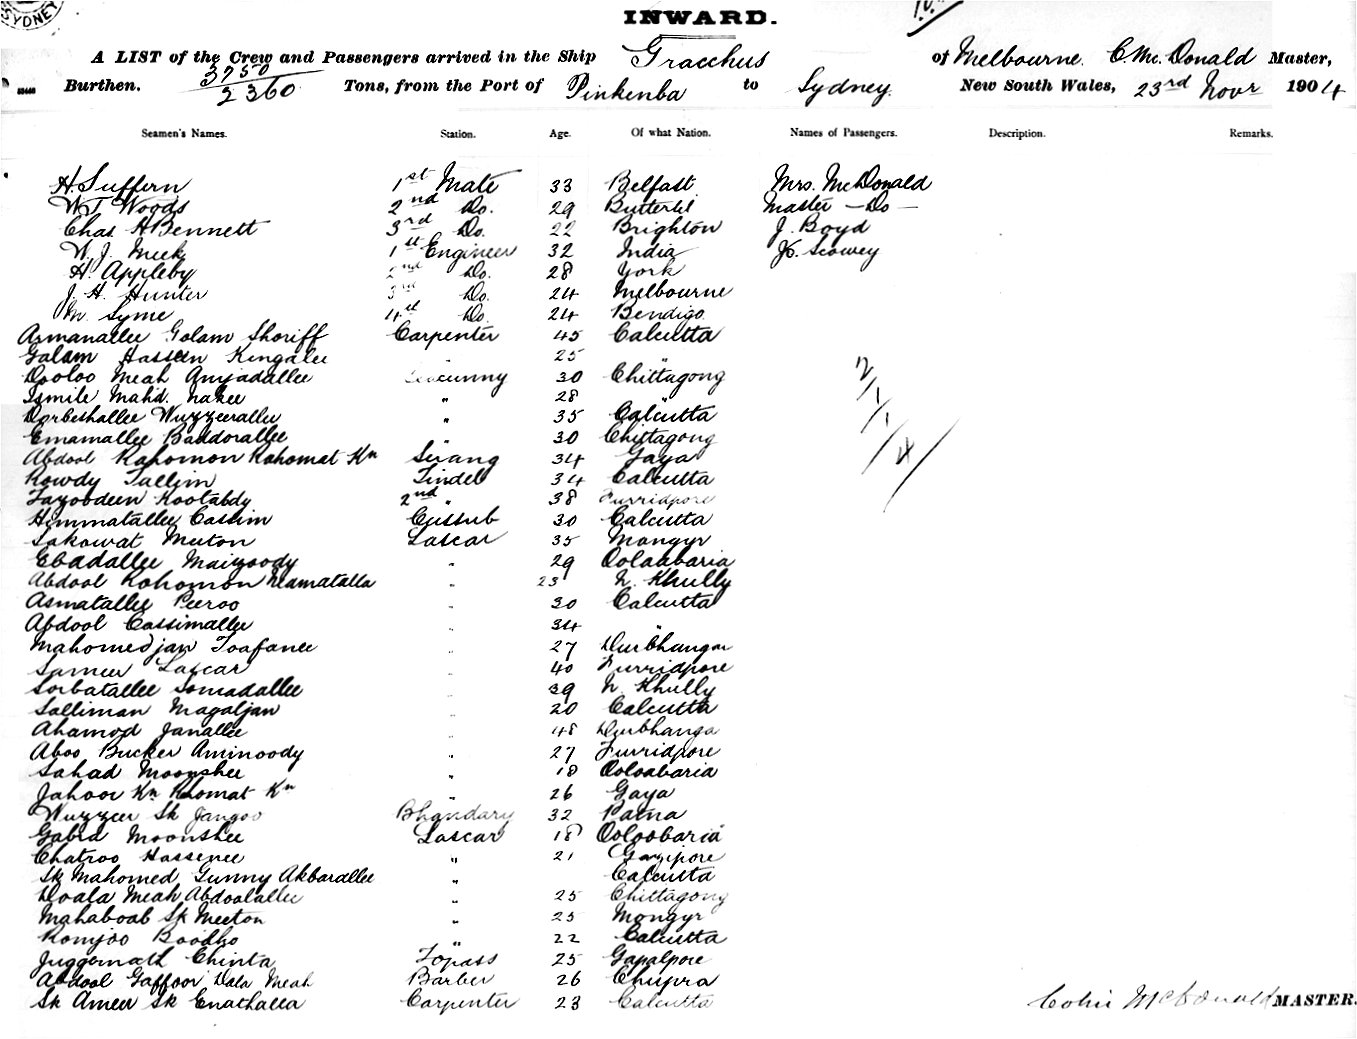 SYDNEY
INWARD.
A LIST of the Crew and Passengers arrived in the Ship Gracchus of Melbourne. C. McDonald Master,
Burthen. 3750 / 2360 Tons, from the Port of Pinkenba to Sydney New South Wales, 23rd Novr 1904
Seamen's Names. Station. Age. Of what Nation. Names of Passengers. Description. Remarks.
H. Suffern 1st Mate 33 Belfast Mrs. McDonald
W J Woods 2nd Do. 29 Master - Do -
Chas H Bennett 3rd Do. 22 Brighton J. Boyd
W. J. Meek 1st Engineer 32 India
H. Appleby 2nd Do. 28 York
J. H. Hunter 3rd Do. 24 Melbourne
M. Syme 4th Do. 24 Bendigo
Asmanallee Golam Shoriff Carpenter 45 Calcutta
Golam Hassein Kingalee " 25 "
Dooloo Meah Amjadallee Seacunny 30 Chittagong
Ismile Mahd. Nakee " 28 "
Dorbeshallee Wuzzeerallee " 35 Calcutta
Emamallee Baddorallee " 30 Chittagong
Abdool Rahomon Rahomat Kn Serang 34 Gaya
Rowdy Sallim Tindel 34 Calcutta
Fazobdeen Kootabdy 2nd " 38 Furridpore
Himmatallee Cassim Cussub 30 Calcutta
Sakowat Meeton Lascar 35 Mongyr
Ebadallee Maizoody " 29 Ooloabaria
Abdool Rohomon Namatalla " 23 N. Khully
Asmatallee Peeroo " 30 Calcutta
Abdool Cassimallee " 34 "
Mahomedjan Toafanee " 27 Durbhunga
Sameer Lascar " 40 Furridpore
Sorbatallee Somadallee " 39 N. Khully
Salliman Magaljan " 20 Calcutta
Ahamod Janallee " 48 Durbhanga
Aboo Bucker Aminoody " 27 Furridpore
Sahad Moonshee " 18 Ooloabaria
Jahoor Kn Rhomat Kn " 26 Gaya
Wuzzeer Sk Jangoo Bhandary 32 Patna
Gabid Moonshee Lascar 18 Ooloobaria
Chatroo Hassenee " 21 Gazipore
Sk Mahomed Gunny Akbarallee " Calcutta
Doala Meah Abdoolallee " 25 Chittagong
Mahaboab Sk Meeton " 25 Mongyr
Romjoo Boodho " 22 Calcutta
Juggernath Chinta Topass 25 Gopalpore
Abdool Gaffoor Dala Meah Barber 26 Chupra
Sk Ameer Sk Enathalla Carpenter 23 Calcutta
Colin McDonald MASTER.